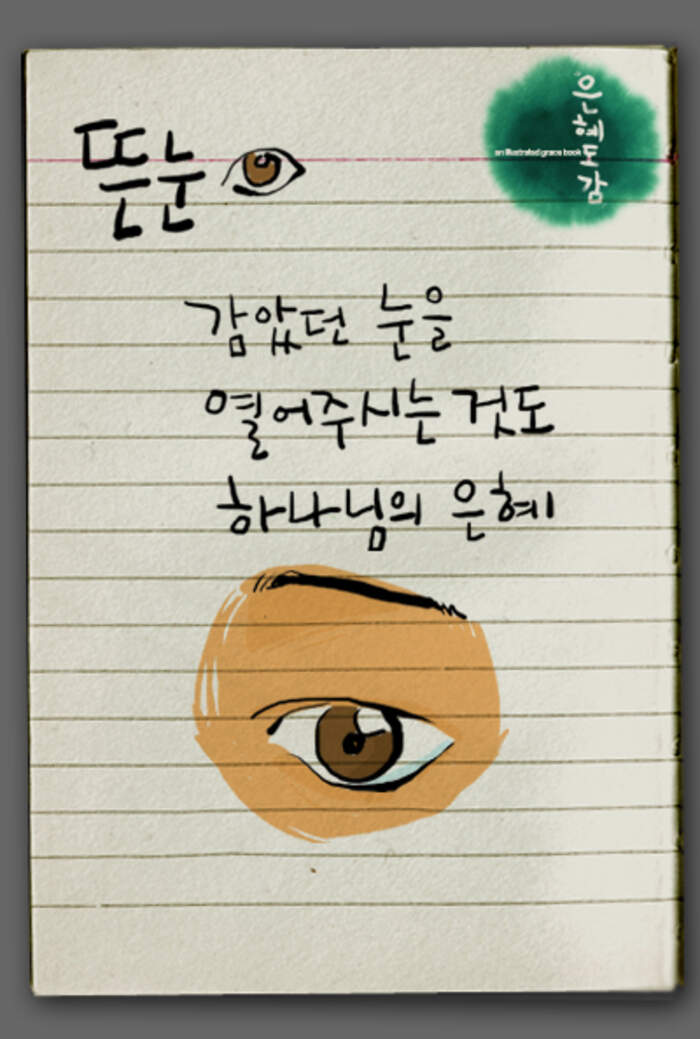 뜬눈
은혜도감
an illustrated grace book
감았던 눈을
열어주시는 것도
하나님의 은혜